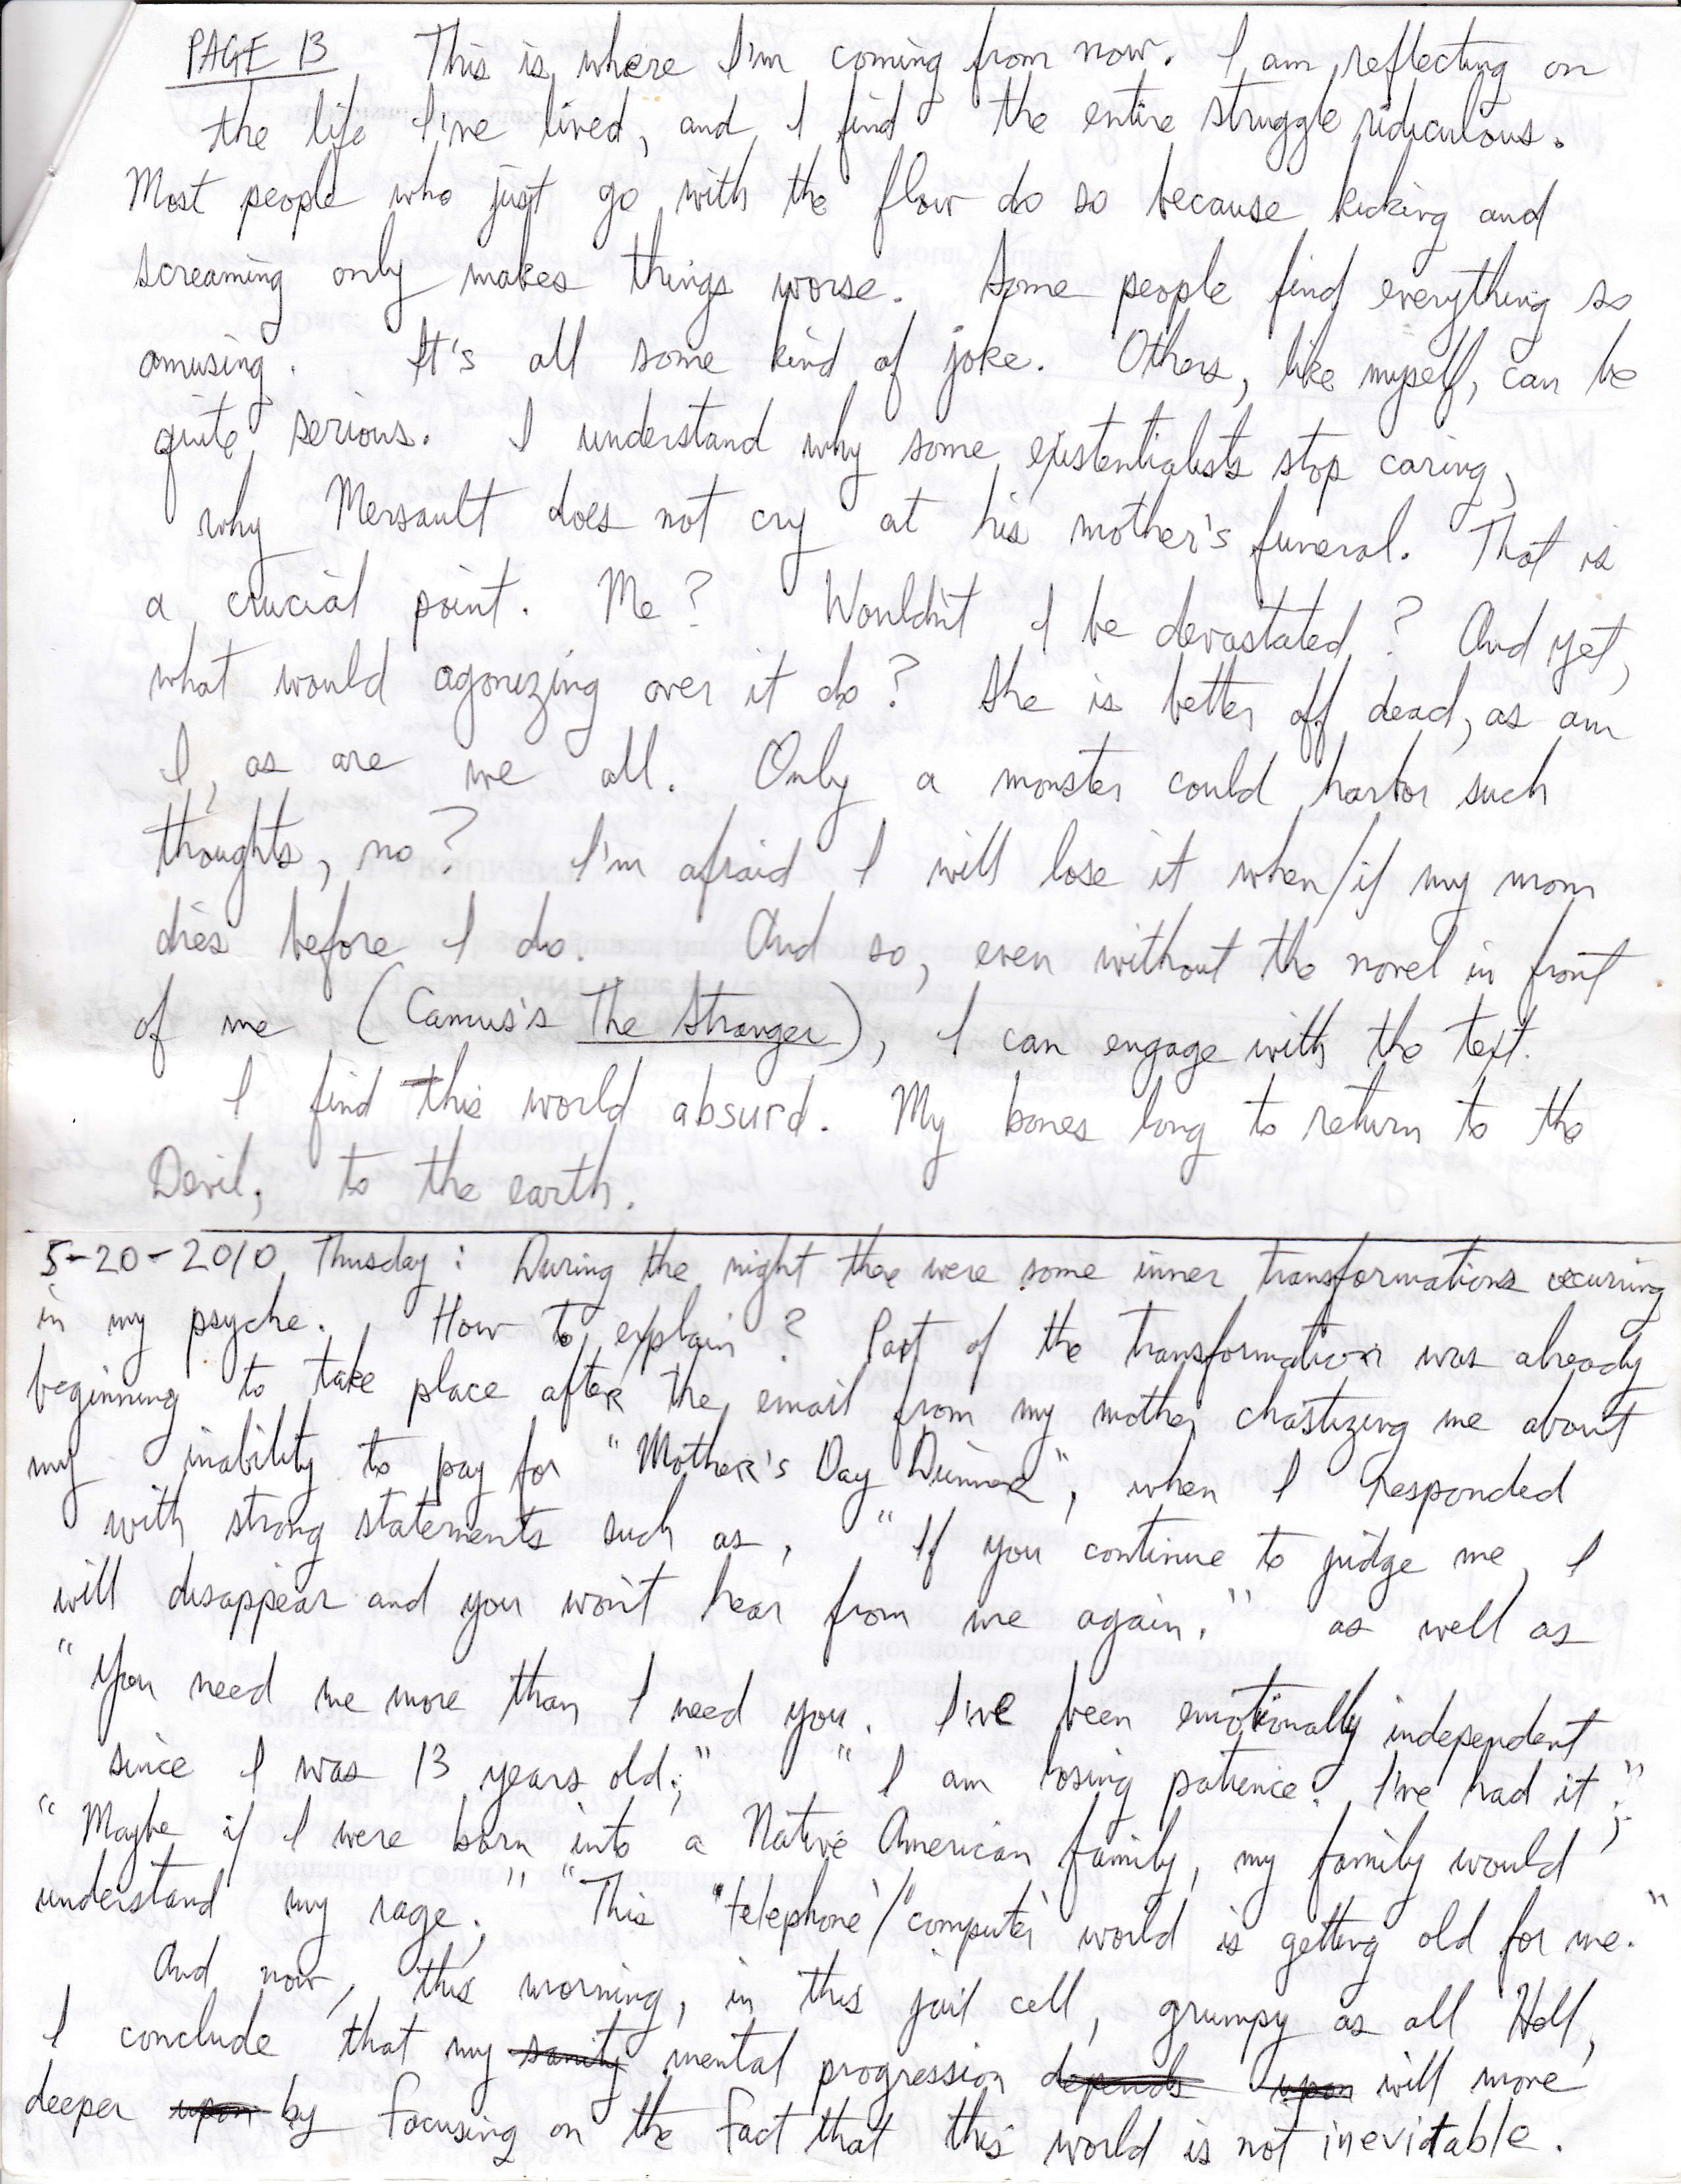 PAGE 13 This is where I'm coming from now. I am reflecting on
the life I've lived, and I find the entire struggle ridiculous.
Most people who just go with the flow do so because kicking and
screaming only makes things worse. Some people find everything so
amusing. It's all some kind of joke. Others, like myself, can be
quite serious. I understand why some existentialists stop caring,
why Mersault does not cry at his mother's funeral. That is
a crucial point. Me? Wouldn't I be devastated? And yet,
what would agonizing over it do? She is better off dead, as am
I, as are we all. Only a monster could harbor such
thoughts, no? I'm afraid I will lose it when/if my mom
dies before I do. And so, even without the novel in front
of me (Camus's The Stranger), I can engage with the text.
I find this world absurd. My bones long to return to the
Devil, to the earth.
5-20-2010 Thusday: During the night there were some inner transformations occuring
in my psyche. How to explain? Part of the transformation was already
beginning to take place after the email from my mother chastizing me about
my inability to pay for "Mother's Day Dinner", when I responded
with strong statements such as, "If you continue to judge me, I
will disappear and you won't hear from me again." as well as
"You need me more than I need you. I've been emotionally independent
since I was 13 years old;" "I am losing patience. I've had it.";
"Maybe if I were born into a Native American family, my family would
understand my rage;" "This 'telephone'/'computer' world is getting old for me."
And now, this morning, in this jail cell, grumpy as all Hell,
I conclude that my sanity mental progression depends upon will move
deeper upon by focusing on the fact that this world is not inevitable.